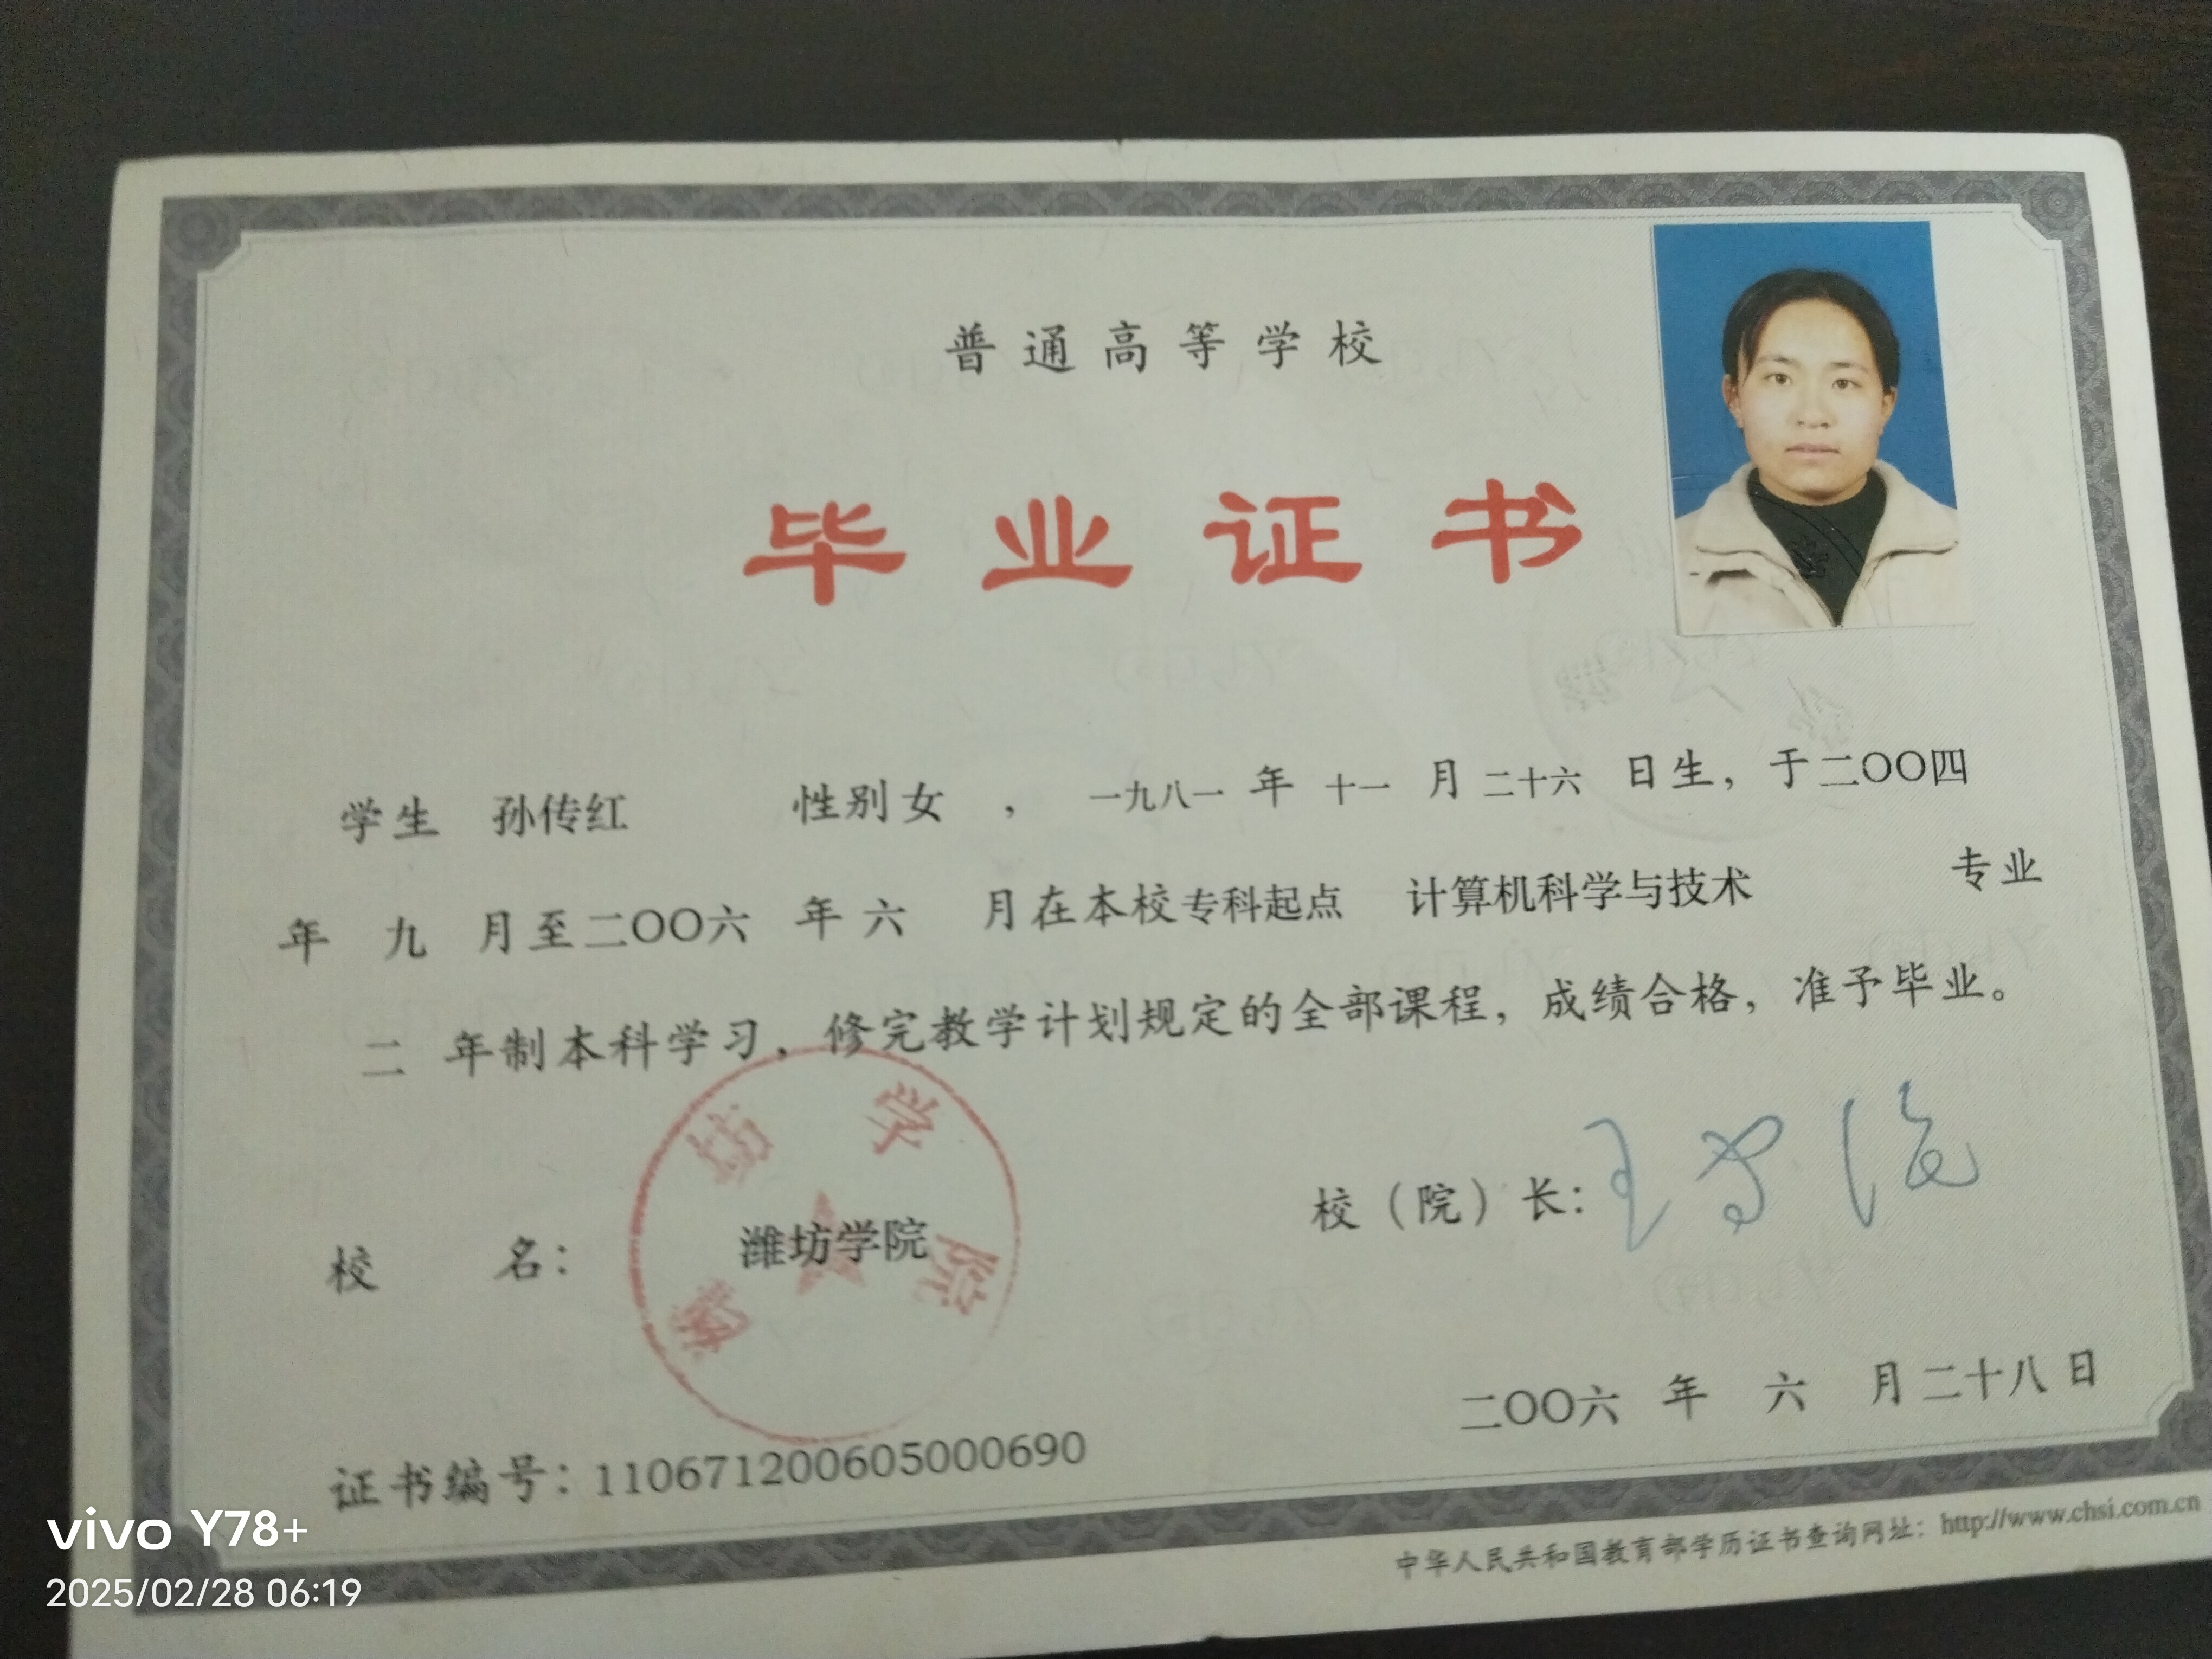 普通高等学校
毕业证书
学生 孙传红 性别 女 ， 一九八一 年 十一 月 二十六 日生，于二〇〇四
年 九 月至二〇〇六 年 六 月在本校专科起点 计算机科学与技术 专业
二 年制本科学习，修完教学计划规定的全部课程，成绩合格，准予毕业。
校 名： 潍坊学院
潍坊学院
校（院）长：
二〇〇六 年 六 月二十八日
证书编号：110671200605000690
中华人民共和国教育部学历证书查询网址：http://www.chsi.com.cn
vivo Y78+
2025/02/28 06:19